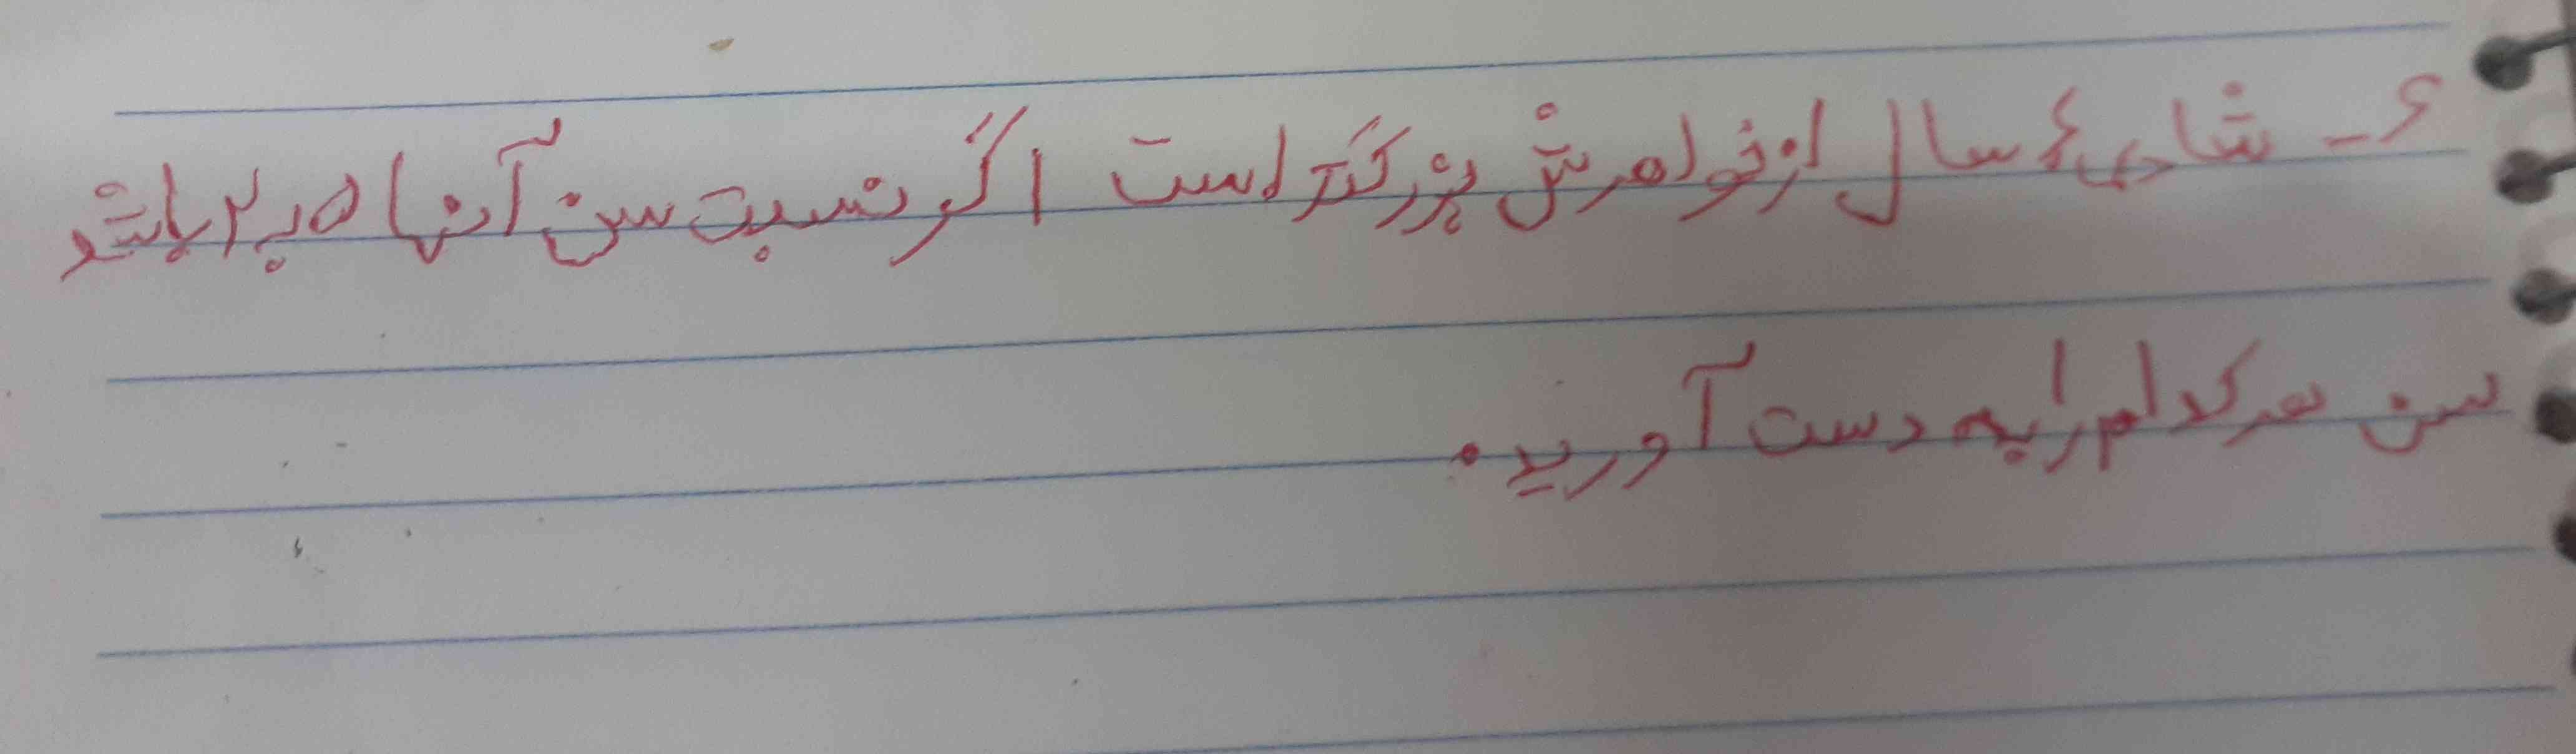 ۶ - شادی ۶ سال از خواهرش بزرگتر است اگر نسبت سن آنها ۵ به ۲ باشد
سن هر کدام را به دست آورید.